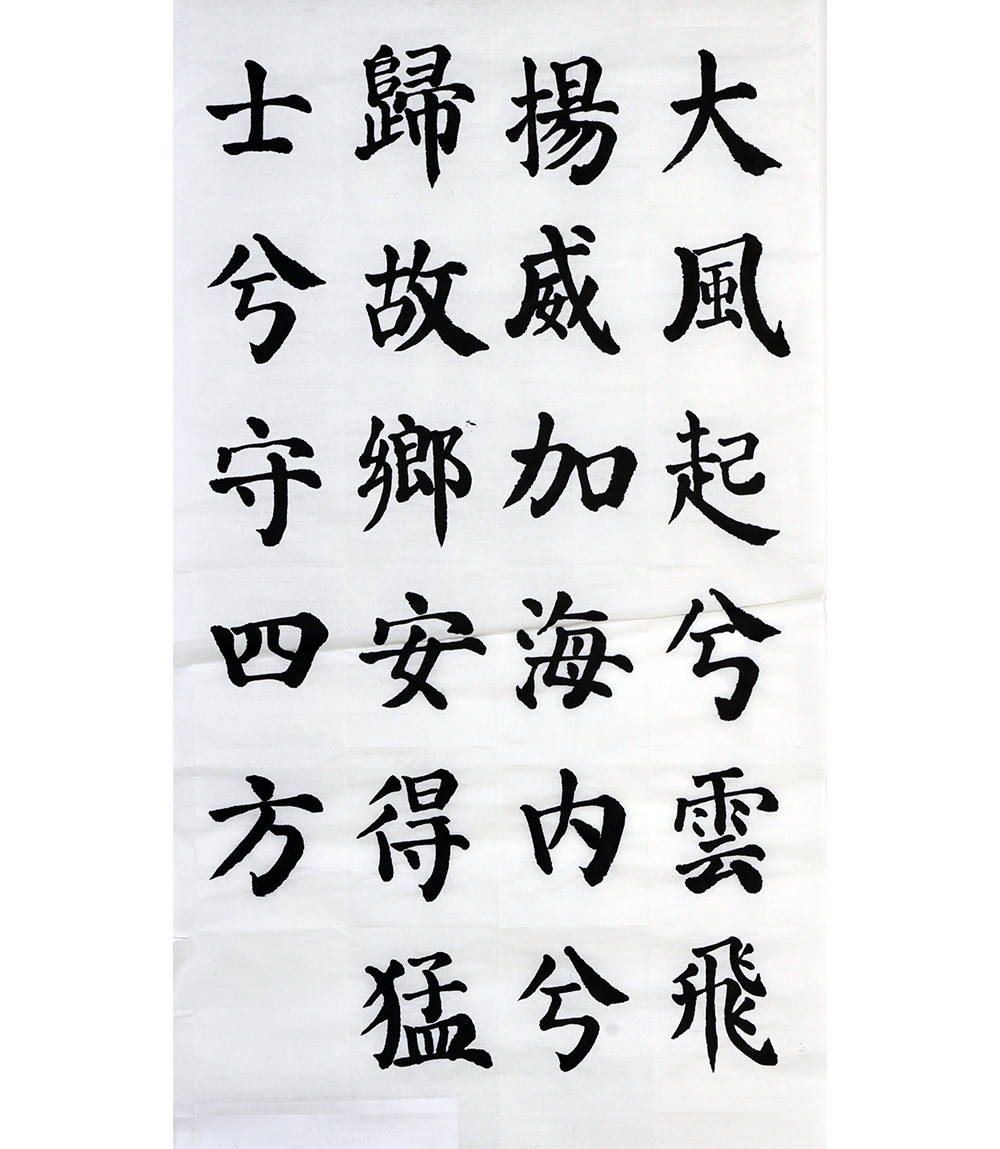 大風起兮雲飛
揚威加海内兮
歸故鄉安得猛
士兮守四方